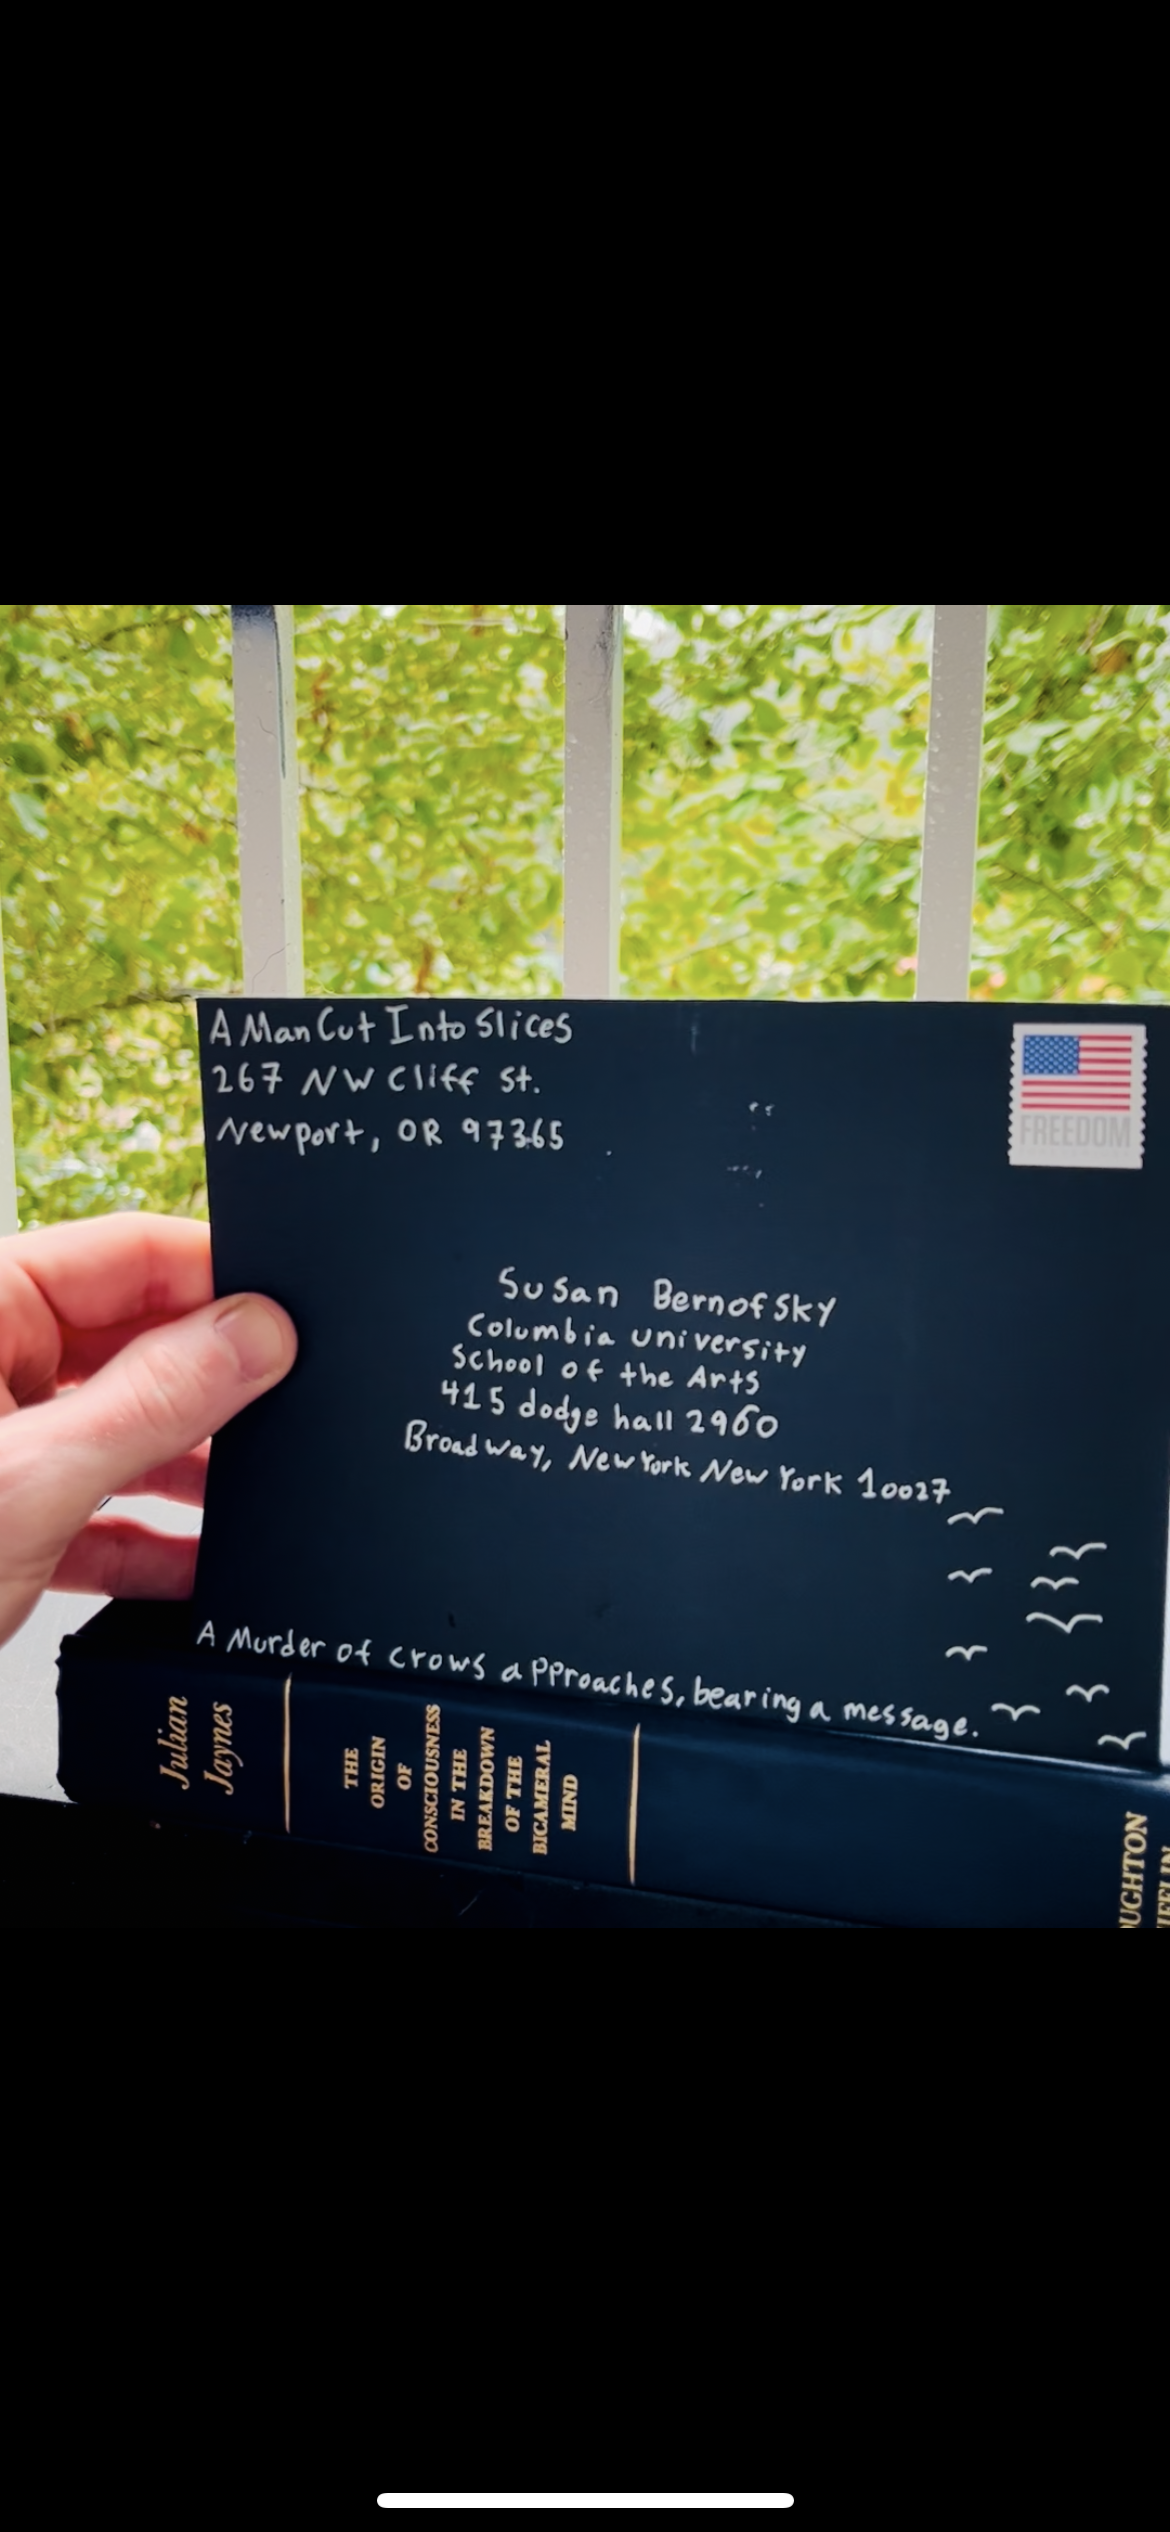 A Man Cut Into Slices
267 NW Cliff St.
Newport, OR 97365
FREEDOM
Susan Bernofsky
Columbia university
School of the Arts
415 dodge hall 2960
Broadway, New York New York 10027
A Murder of crows approaches, bearing a message.
Julian
Jaynes
THE
ORIGIN
OF
CONSCIOUSNESS
IN THE
BREAKDOWN
OF THE
BICAMERAL
MIND